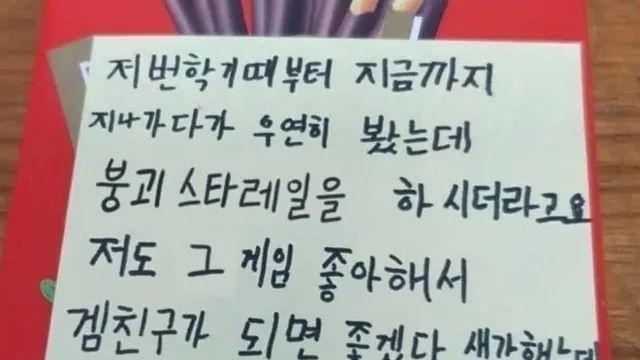 저번학기때부터 지금까지
지나가다가 우연히 봤는데
붕괴 스타레일을 하시더라고요
저도 그 게임 좋아해서
겜친구가 되면 좋겠다